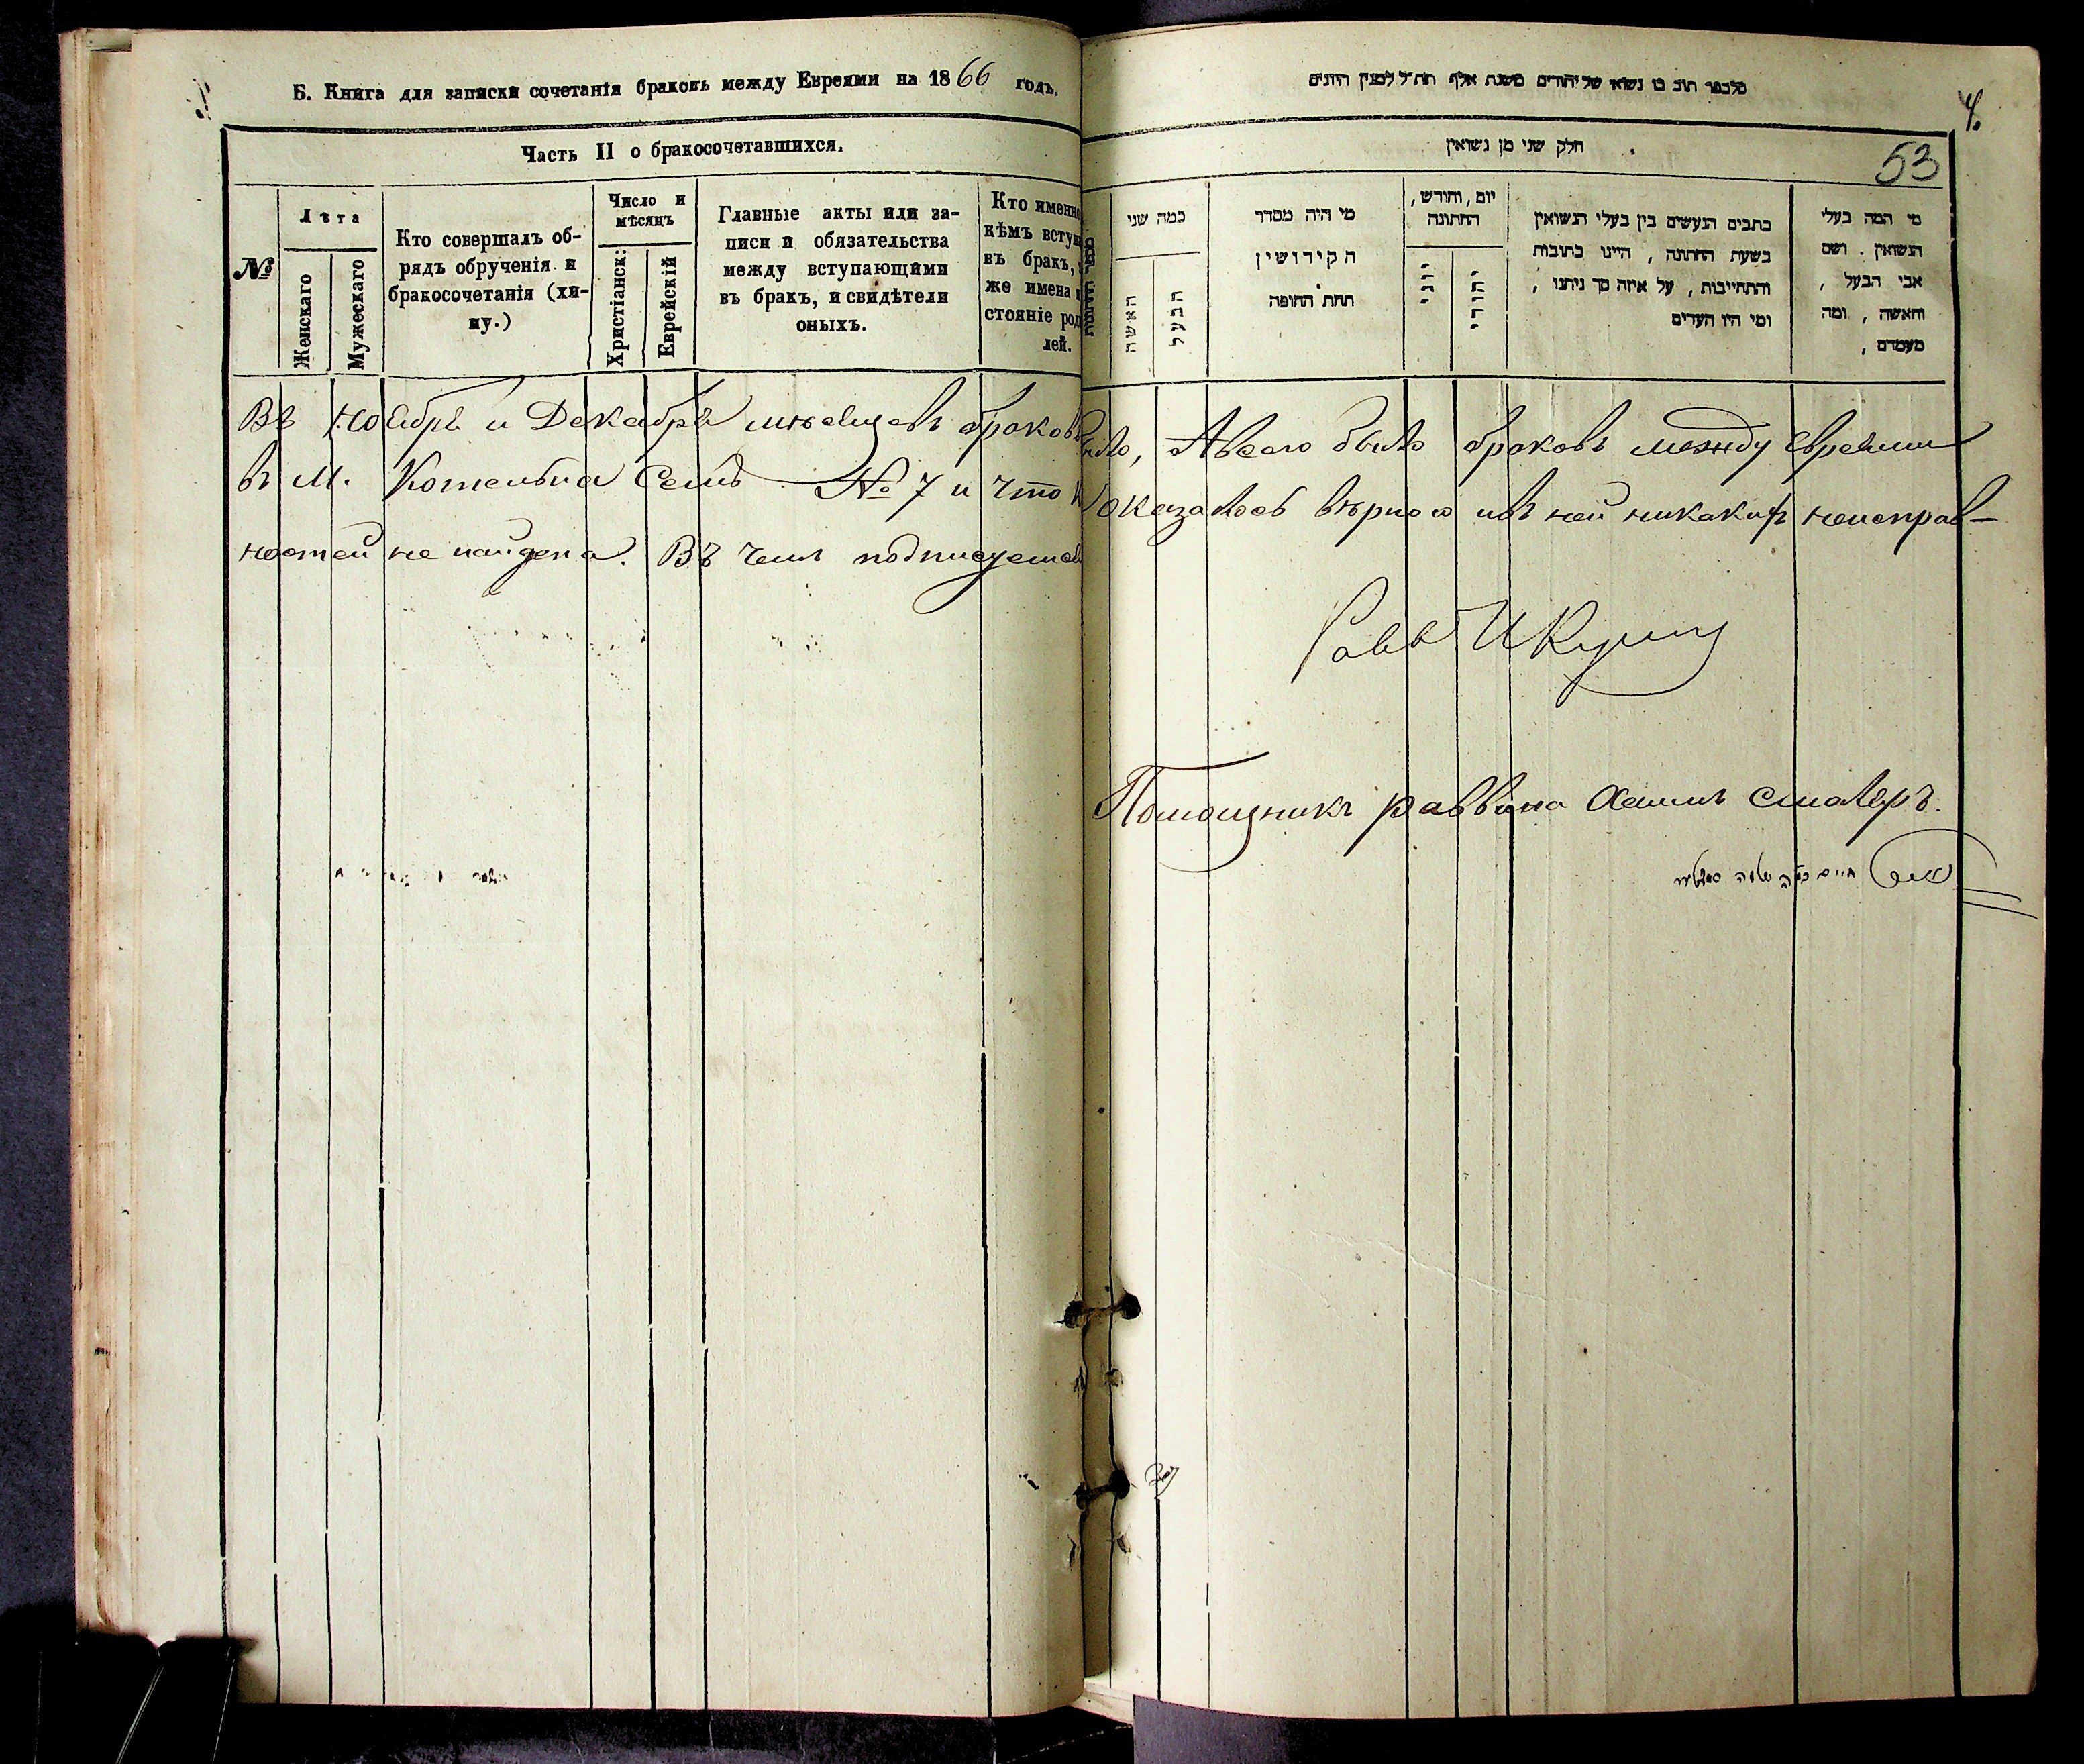 Б. Книга для записки сочетанія браковъ между Евреями на 1866 годъ.
Часть II о бракосочетавшихся.
№
Лѣта
Женскаго
Мужескаго
Кто совершалъ об-
рядъ обрученія и
бракосочетанія (хи-
пу.)
Число и
мѣсяцъ
Христіанск:
Еврейскій
Главные акты или за-
писи и обязательства
между вступающими
въ бракъ, и свидѣтели
оныхъ.
Кто именно
кѣмъ вступ
въ бракъ,
же имена
стояніе род
лей.
חלק שני מן נשואין
4.
53
כמה שני
האשה
הבעל
מי היה מסדר
הקידושין
תחת החופה
יום, וחודש,
החתונה
יוני
יהודי
כתבים הנעשים בין בעלי הנשואין
בשעת החתונה, היינו כתובות
והתחייבות, על איזה סך ניתנו,
ומי היו העדים
מי המה בעלי
הנשואין. ושם
אבי הבעל,
והאשה, ומה
מעמדם,
Въ Ноябрѣ и Декабрѣ мѣсяцевъ браковъ было, А всего было браковъ между евреями
въ М. Котельна Семь № 7 и что оказалось вѣрною и въ ней никакихъ неисправ-
ностей не найдена. Въ чемъ подписуемся
Равв И Куниц
Помощникъ раввина Хаимъ Смоляръ.